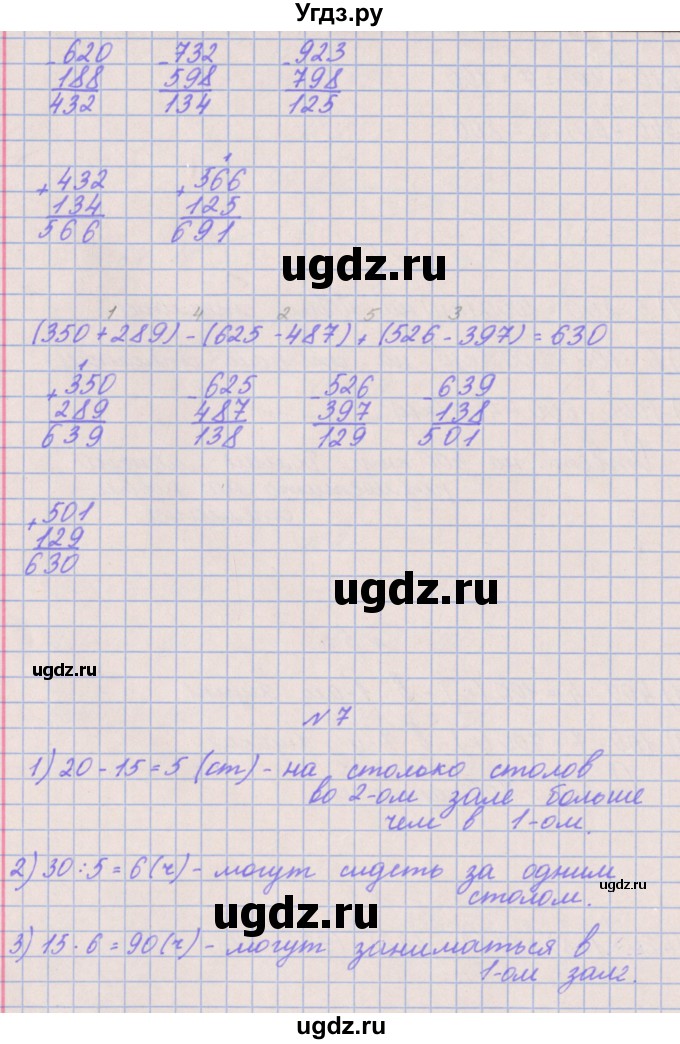 Угдз.ру
-620 -732 -923
188 598 798
432 134 125
1
+432 +566
134 125
566 691
ugdz.ru
1 4 2 5 3
(350+289)-(625-487)+(526-397)=630
1
+350 -625 -526 -639
289 487 397 138
639 138 129 501
+501
129
630
ugdz.ru
ugdz.ru
№7
1) 20-15=5 (ст) - на столько столов
во 2-ом зале больше
чем в 1-ом.
2) 30:5=6(ч) - могут сидеть за одним
ugdz.ru
столом.
ugdz.ru
3) 15·6=90(ч) - могут заниматься в
1-ом зале.
ugdz.ru